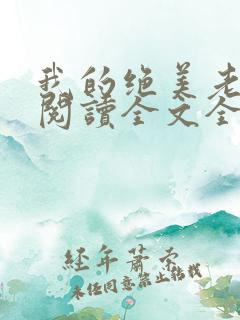 我的绝美老
閱讀全文全
经年萧索
未经同意禁止转载